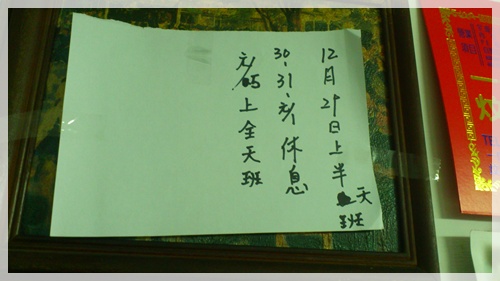 12月29日上半天班
30、31、元/1休息
元/5上全天班